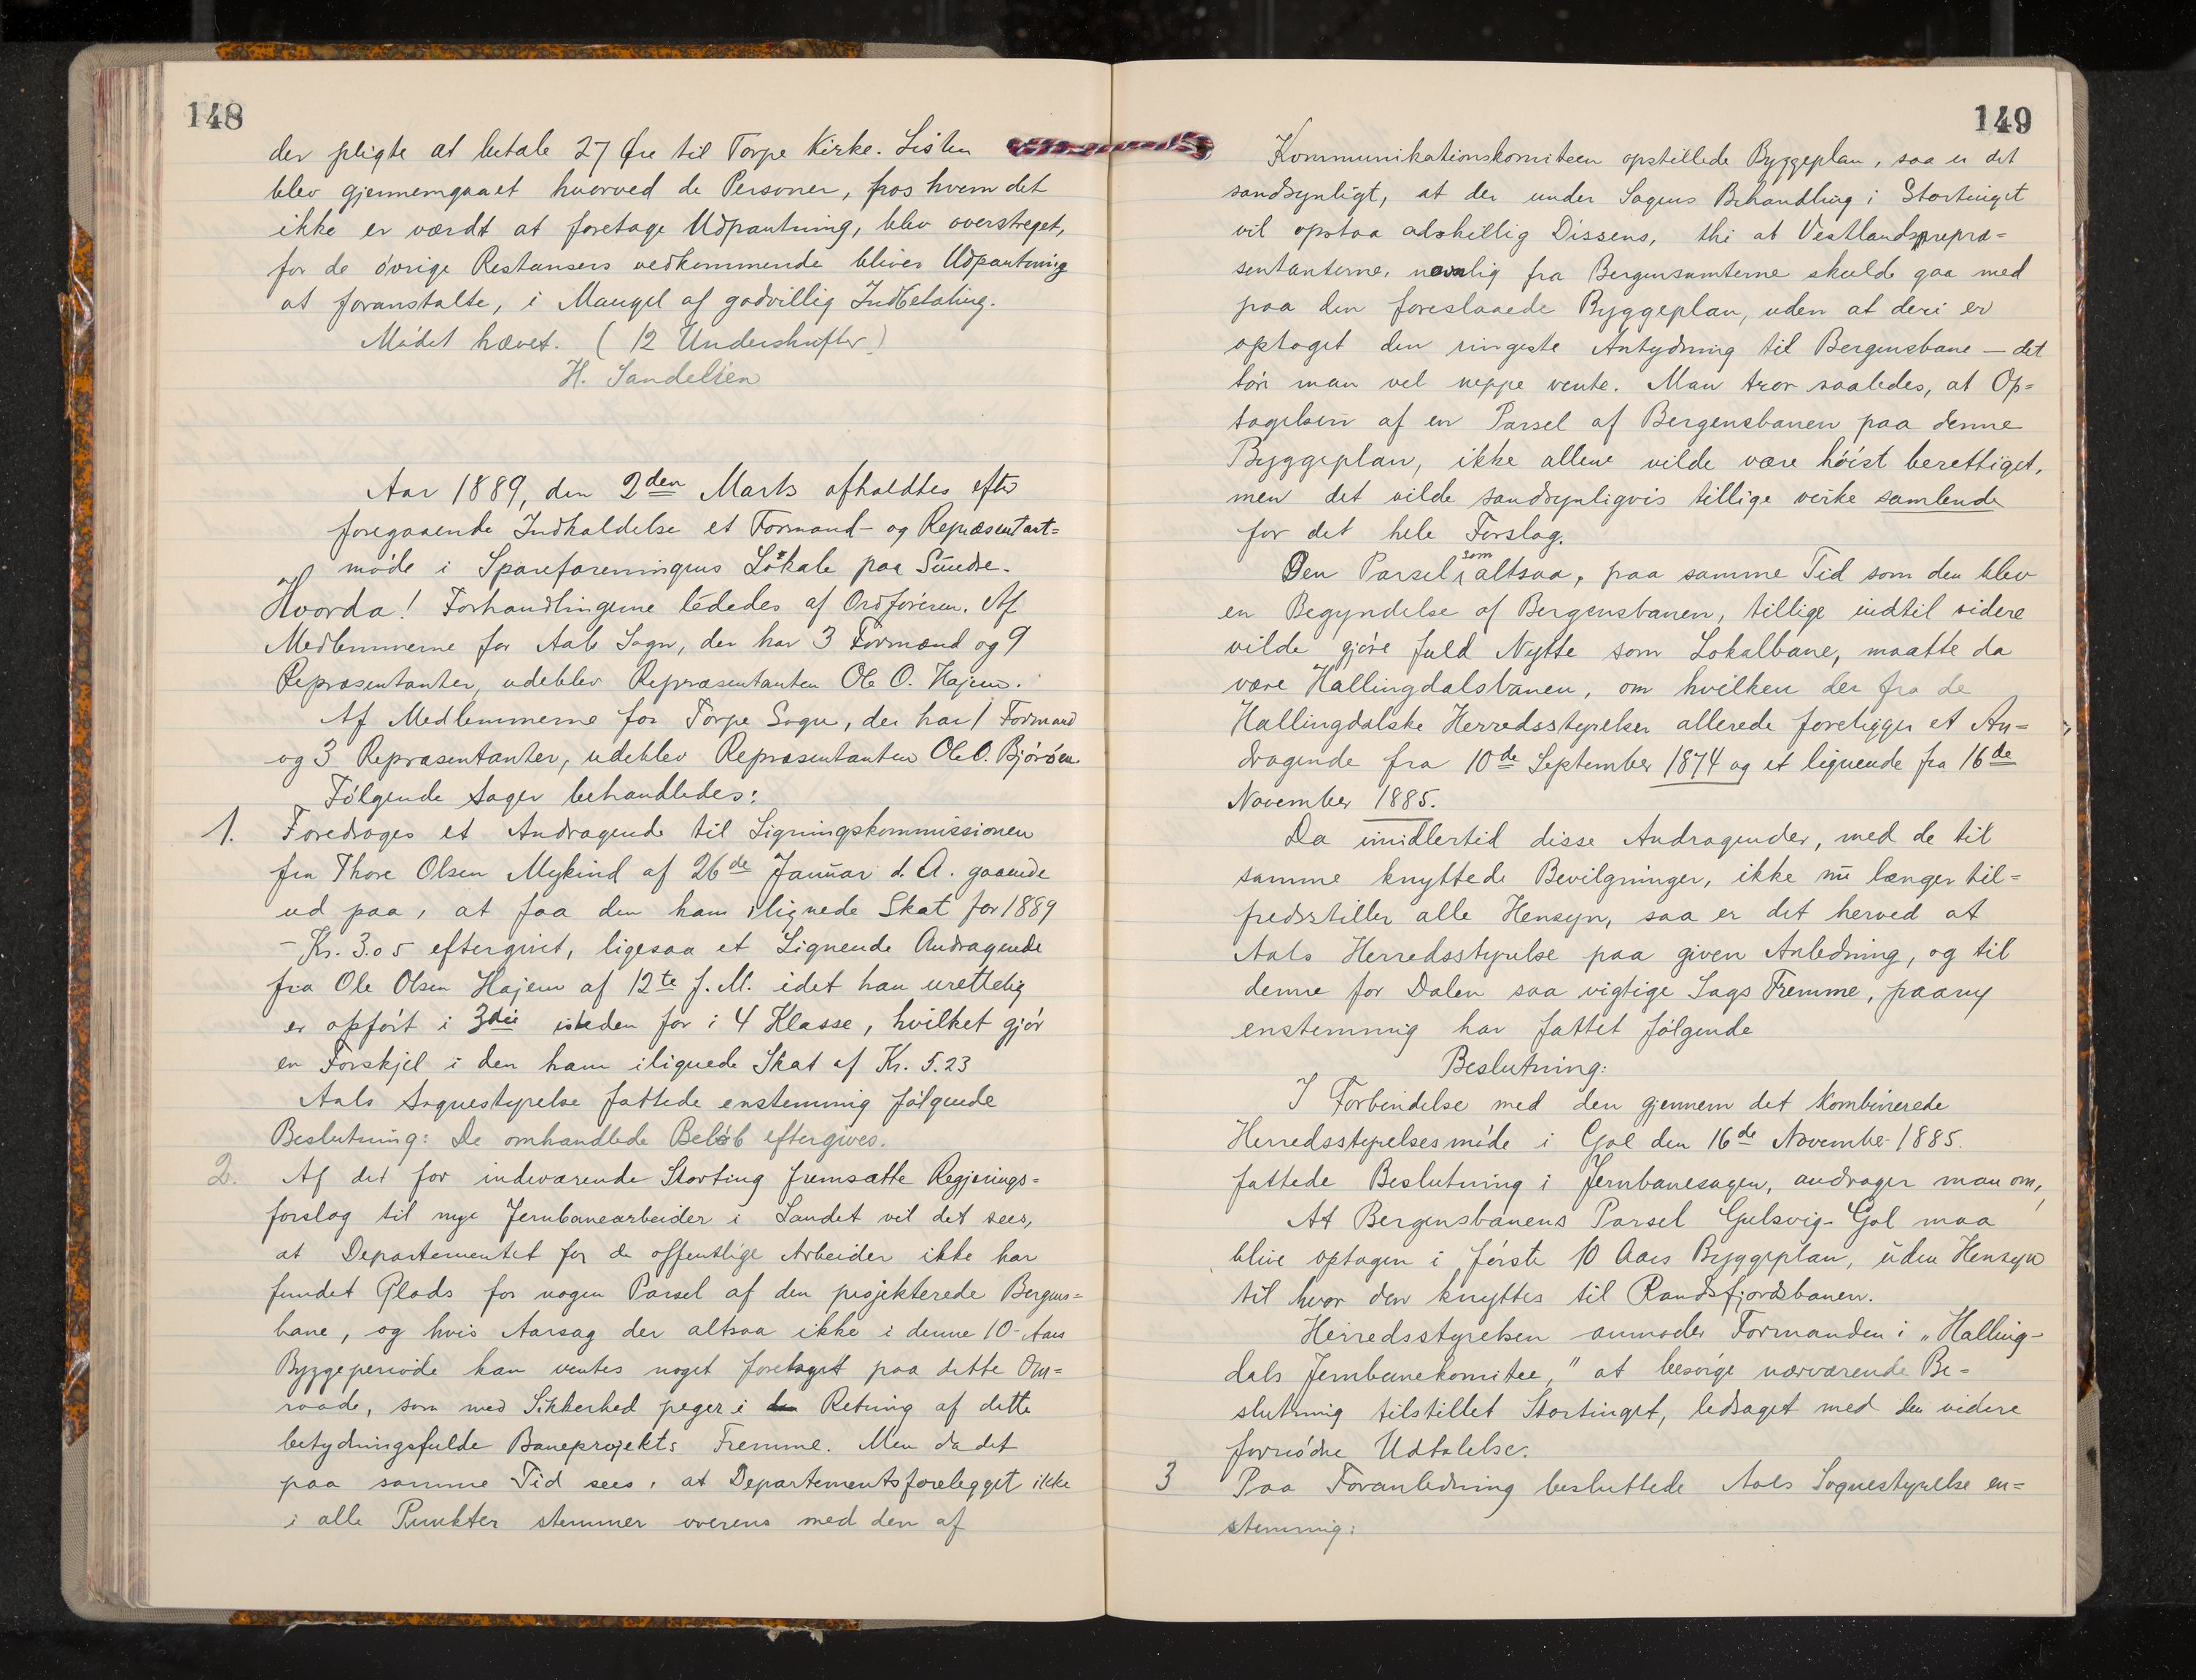 148
der pligte at betale 27 Øre til Torpe Kirke. Listen
blev gjennemgaaet hvorved de Personer, hos hvem det
ikke er værdt at foretage Udpantning, blev overstreget,
for de øvrige Restansers vedkommende bliver Udpantning
at foranstalte, i Mangel af godvillig Indbetaling.
Mødet hævet. (12 Underskrifter)
H. Sandelien
Aar 1889, den 2den Marts afholdtes efter
foregaaende Indkaldelse et Formand- og Repræsentant=
møde i Spareforeningens Lokale paa Sundre.
Hvorda! Forhandlingerne lededes af Ordføreren. Af
Medlemmerne for Aals Sogn, der har 3 Formænd og 9
Repræsentanter, udeblev Repræsentanten Ole O. Hajem.
Af Medlemmerne for Torpe Sogn, der har 1 Formand
og 3 Repræsentanter, udeblev Repræsentanten Ole O. Bjøröen
Følgende Sager behandledes:
1. Foredroges et Andragende til Ligningskommissionen
fra Thore Olsen Mykind af 26de Januar d. A. gaaende
ud paa, at faa den ham ilignede Skat for 1889
- Kr. 3.05 eftergivet, ligesaa et Lignende Andragende
fra Ole Olsen Hajem af 12te f. M. idet han urettelig
er opført i 3die isteden for i 4 Klasse, hvilket gjør
en Forskjel i den ham ilignede Skat af Kr. 5.23
Aals Sognestyrelse fattede enstemmig følgende
Beslutning: De omhandlede Beløb eftergives.
2. Af det for indeværende Storting fremsatte Regjerings=
forslag til nye Jernbanearbeider i Landet vil det sees,
at Departementet for de offentlige Arbeider ikke har
fundet Plads for nogen Parsel af den projekterede Bergens=
bane, og hvis Aarsag der altsaa ikke i denne 10-Aars
Byggeperiode kan ventes noget foretaget paa dette Om=
raade, som med Sikkerhed peger i Retning af dette
betydningsfulde Baneprojekts Fremme. Men da det
paa samme Tid sees, at Departementsforelegget ikke
i alle Punkter stemmer overens med den af
149
Kommunikationskomiteen opstillede Byggeplan, saa er det
sandsynligt, at der under Sagens Behandling i Stortinget
vil opstaa adskillig Dissens, thi at Vestlandsrepræ=
sentanterne, navnlig fra Bergensamterne skulde gaa med
paa den foreslaaede Byggeplan, uden at deri er
optaget den ringeste Antydning til Bergensbane — det
tør man vel neppe vente. Man tror saaledes, at Op=
tagelsen af en Parsel af Bergensbanen paa denne
Byggeplan, ikke allene vilde være høist berettiget,
men det vilde sandsynligvis tillige virke samlende
for det hele Forslag.
Den Parsel som altsaa, paa samme Tid som den blev
en Begyndelse af Bergensbanen, tillige indtil videre
vilde gjøre fuld Nytte som Lokalbane, maatte da
være Hallingdalsbanen, om hvilken der fra de
Hallingdalske Herredsstyrelser allerede foreligger et An=
dragende fra 10de September 1874 og et lignende fra 16de
November 1885.
Da imidlertid disse Andragender, med de til
samme knyttede Bevilgninger, ikke nu længer til=
fredsstiller alle Hensyn, saa er det herved at
Aals Herredsstyrelse paa given Anledning, og til
denne for Dalen saa vigtige Sags Fremme, paany
enstemmig har fattet følgende
Beslutning:
I Forbindelse med den gjennem det kombinerede
Herredsstyrelsesmøde i Gol den 16de November 1885.
fattede Beslutning i Jernbanesagen, andrager man om,
At Bergensbanens Parsel Gulsvig-Gol maa
blive optagen i første 10 Aars Byggeplan, uden Hensyn
til hvor den knyttes til Randsfjordsbanen.
Herredsstyrelsen anmoder Formanden i „Halling-
dals Jernbanekomitee," at besørge nærværende Be=
slutning tilstillet Stortinget, ledsaget med den videre
fornødne Udtalelse.
3 Paa Foranledning besluttede Aals Sognestyrelse en=
stemmig: